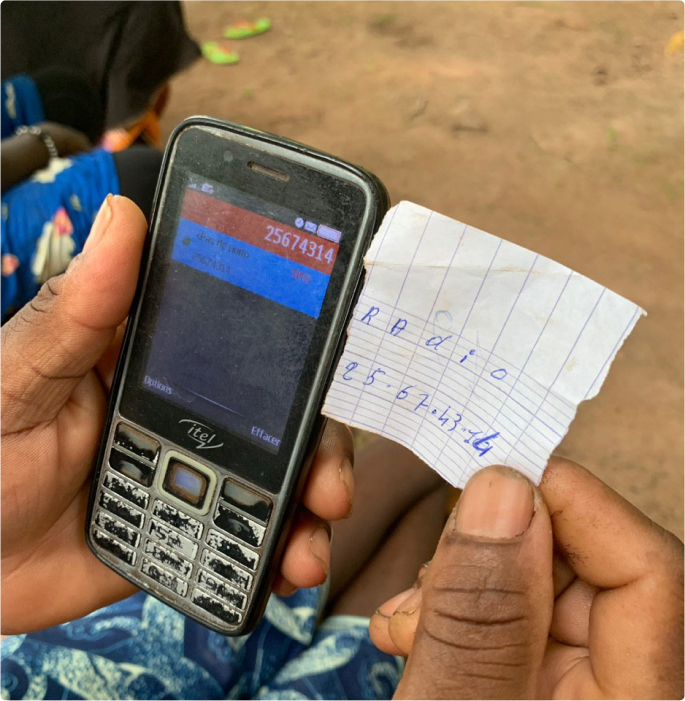 25674314
25674314
Options
Effacer
itel
RAdio
25.67.43.14